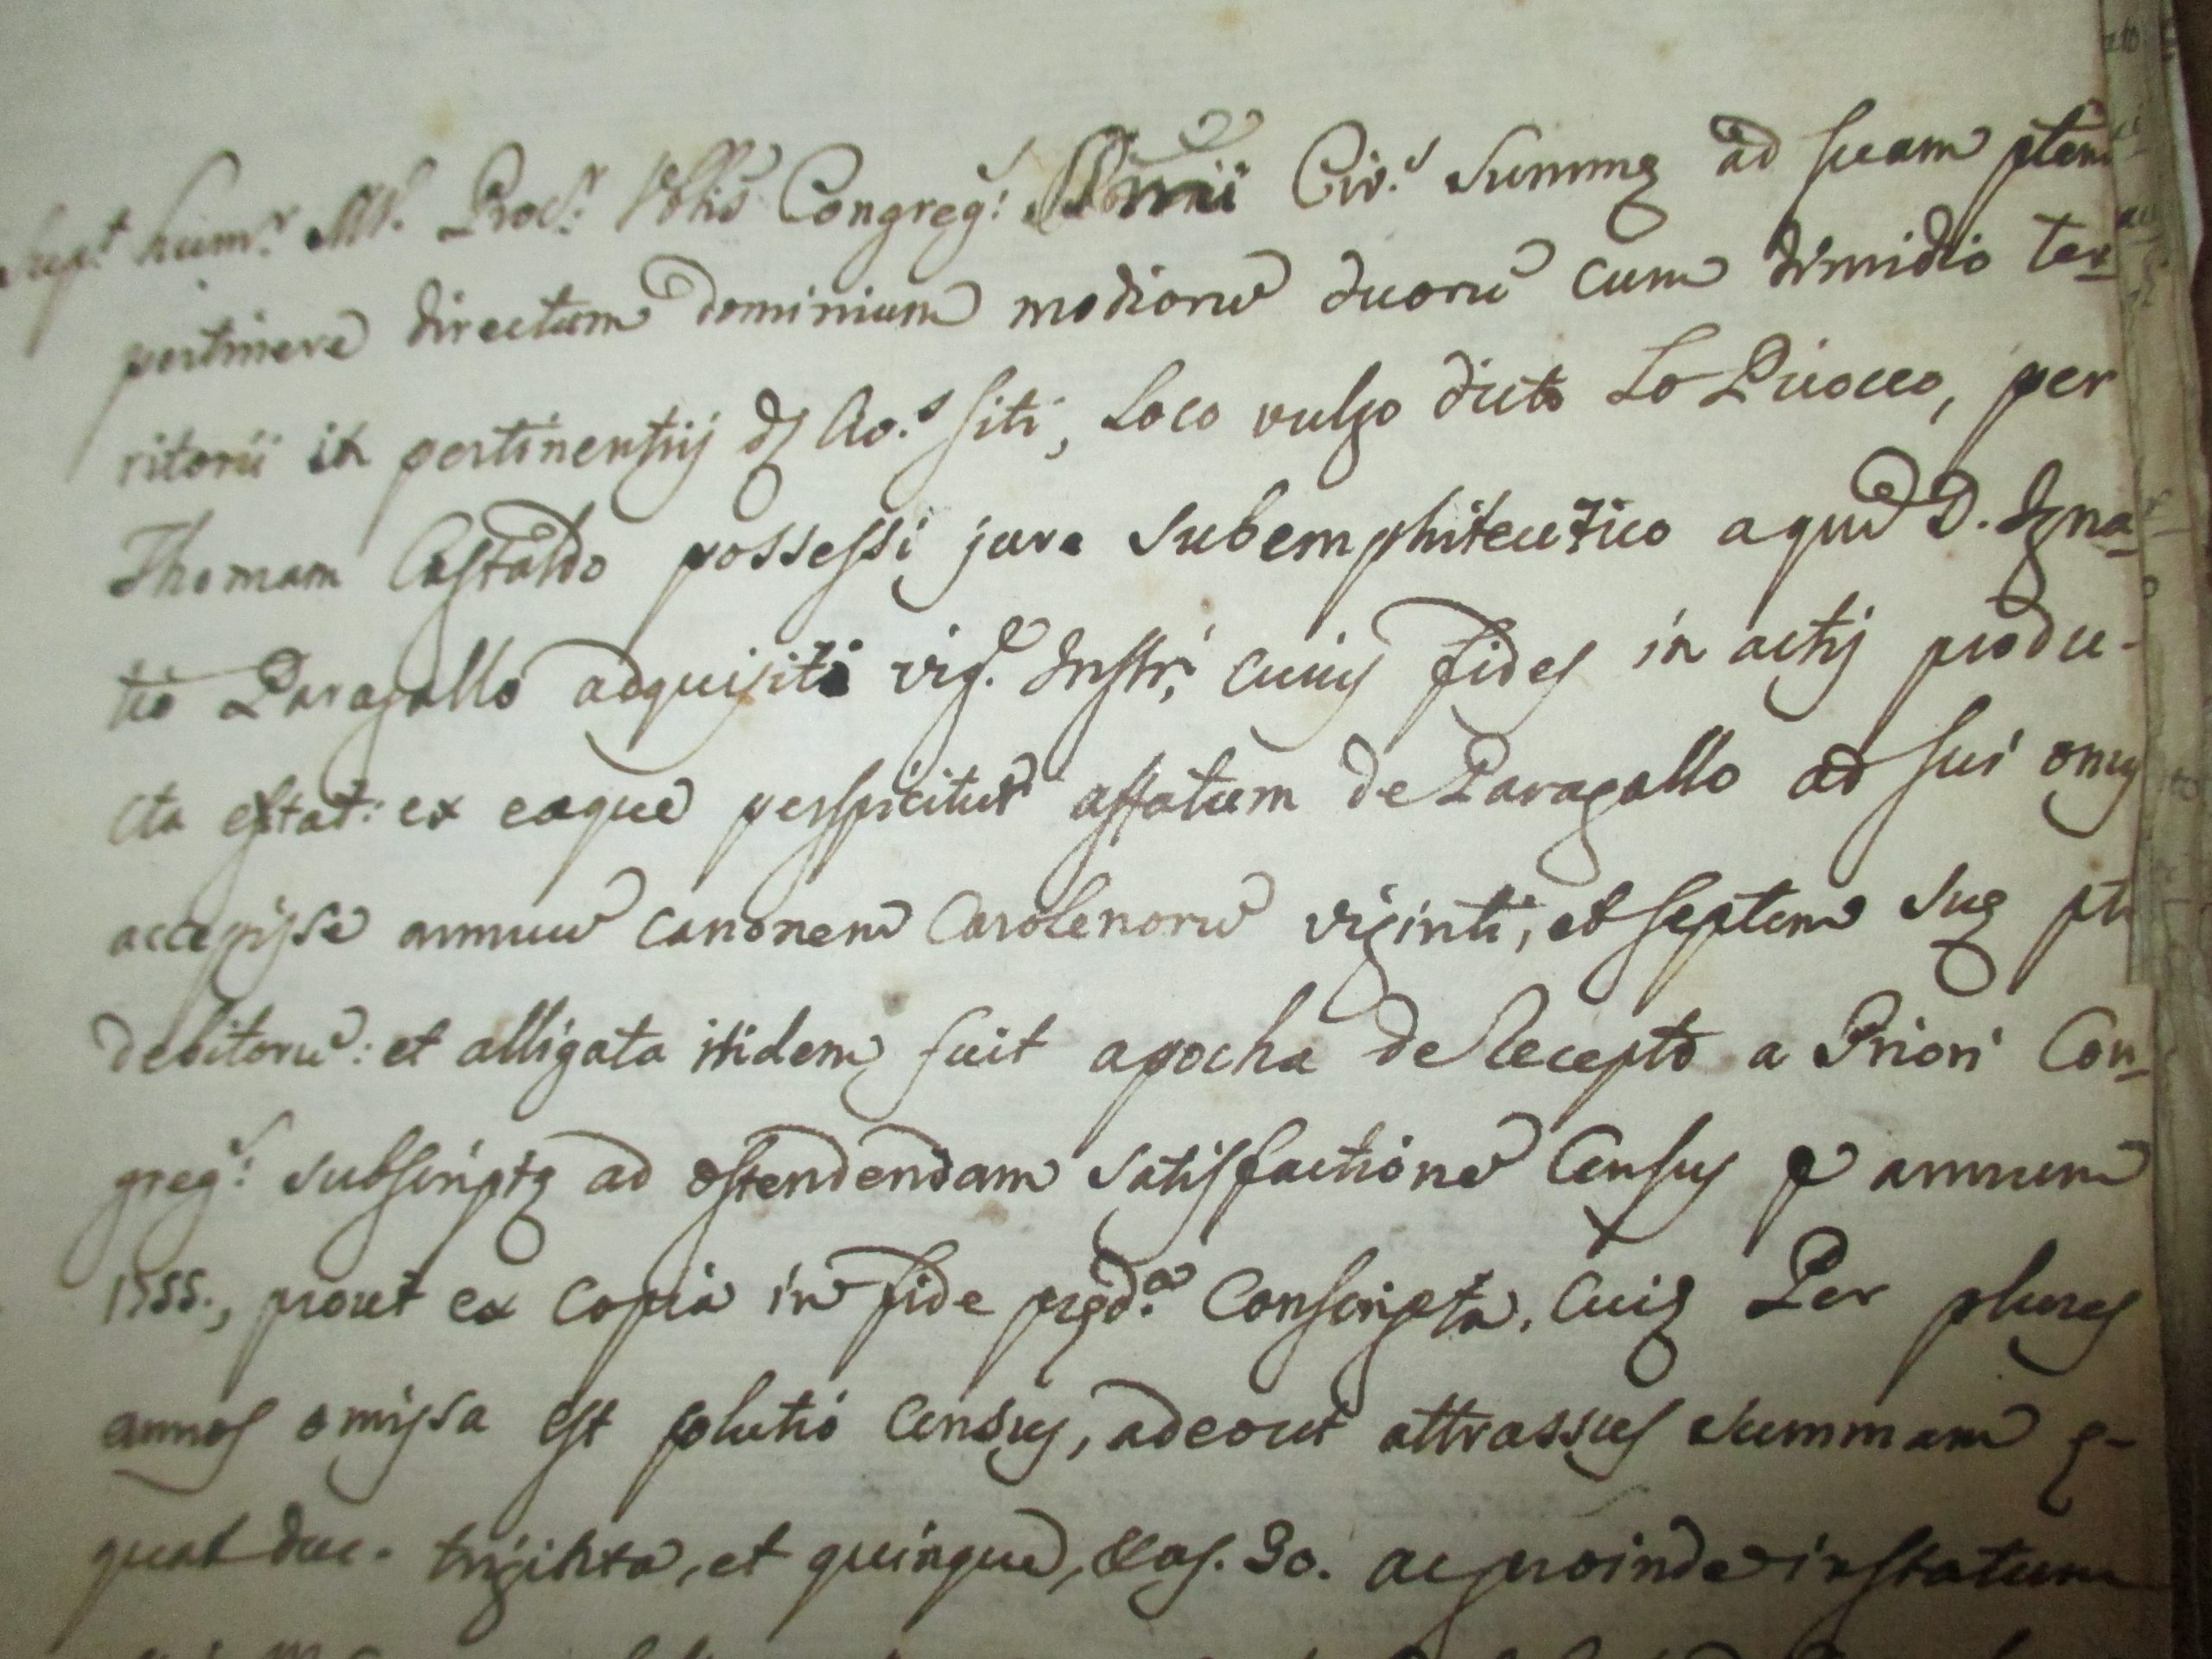 hum.r M.s Proc.r Congreg.s Civ.s Summę ad suam ptem
pertinere directum dominium modioru duoru cum dimidio ter-
ritorii in pertinentiis siti, Loco vulgo dicto Lo Piuocco, per
Thomam Castaldo possessi jure subemphiteutico apud D. Igna-
tio Paragallo adquisiti vig.e Instri, cuius fides in actis produ-
cta extat: ex eaque perspicitur affatum de Paragallo ad sui onus
accepisse annuu canonem Carolenoru viginti, et septem suę
debitoru: et alligata itidem fuit apocha de Recepto a Priori Con-
greg.s: subscripta ad ostendendam satisfactione Census p annum
1755., prout ex copia in fide pręd.a Conscripta. Cuius Per plures
annos omissa est solutio Census, adeout attrassus summam ę-
quat duc. triginta, et quinque, & as. 30. ac proinde instatum